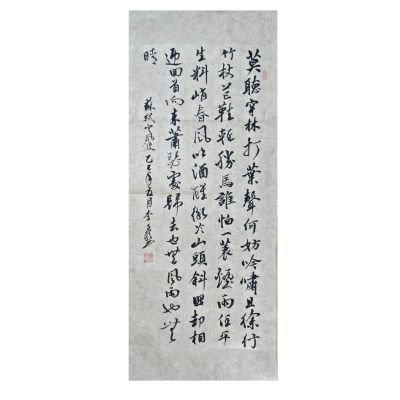 莫聽穿林打葉聲何妨吟嘯且徐行
竹杖芒鞋輕勝馬誰怕一蓑煙雨任平
生料峭春風吹酒醒微冷山頭斜照却相
迎回首向來蕭瑟處歸去也無風雨也無
晴
蘇軾定風波乙巳年月李